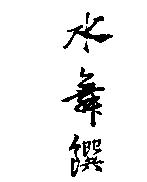 水舞饌